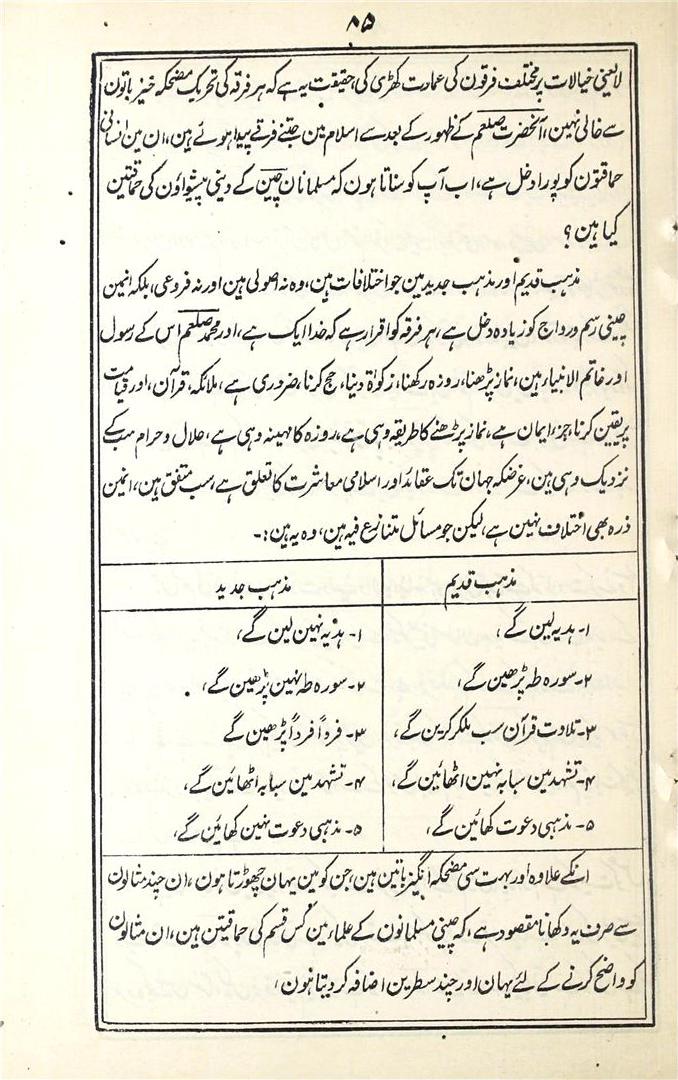 ۸۵
لایعنی خیالات پر مختلف فرقون کی عمارت کھڑی کی، حقیقت یہ ہے کہ ہر فرقہ کی تحریک مضحکہ خیز باتون
سے خالی نہین، آنحضرت صلعم کے ظہور کے بعد سے اسلام مین جتنے فرقے پیدا ہوئے ہین، ان مین انسانی
حماقتون کو پورا دخل ہے، اب آپ کو سناتا ہون کہ مسلمانان چین کے دینی پیشواؤن کی حماقتین
کیا ہین؟
مذہب قدیم اور مذہب جدید مین جو اختلافات ہین، وہ نہ اصولی ہین اور نہ فروعی، بلکہ انمین
چینی رسم و رواج کو زیادہ دخل ہے، ہر فرقہ کو اقرار ہے کہ خدا ایک ہے، اور محمد صلعم اس کے رسول
اور خاتم الانبیاء ہین، نماز پڑھنا، روزہ رکھنا، زکوٰۃ دینا، حج کرنا، ضروری ہے، ملائکہ، قرآن، اور قیامت
پر یقین کرنا، جزِ ایمان ہے، نماز پڑھنے کا طریقہ وہی ہے، روزہ کا مہینہ وہی ہے، حلال و حرام سب کے
نزدیک وہی ہین، غرضکہ جہان تک عقائد اور اسلامی معاشرت کا تعلق ہے، سب متفق ہین، انمین
ذرہ بھی اختلاف نہین ہے، لیکن جو مسائل متنازع فیہ ہین، وہ یہ ہین:۔
مذہب قدیم | مذہب جدید
۱۔ ہدیہ لین گے، | ۱۔ ہدیہ نہین لین گے،
۲۔ سورہ طہ پڑھین گے، | ۲۔ سورہ طہ نہین پڑھین گے،
۳۔ تلاوت قرآن سب ملکر کرین گے، | ۳۔ فرداً فرداً پڑھین گے
۴۔ تشہد مین سبابہ نہین اٹھائین گے، | ۴۔ تشہد مین سبابہ اٹھائین گے،
۵۔ مذہبی دعوت کھائین گے، | ۵۔ مذہبی دعوت نہین کھائین گے،
انکے علاوہ اور بہت سی مضحکہ انگیز باتین ہین، جن کو مین یہان چھوڑتا ہون، ان چند مثالون
سے صرف یہ دکھانا مقصود ہے، کہ چینی مسلمانون کے علماء مین کس قسم کی حماقتین ہین، ان مثالون
کو واضح کرنے کے لئے یہان اور چند سطرین اضافہ کر دیتا ہون،